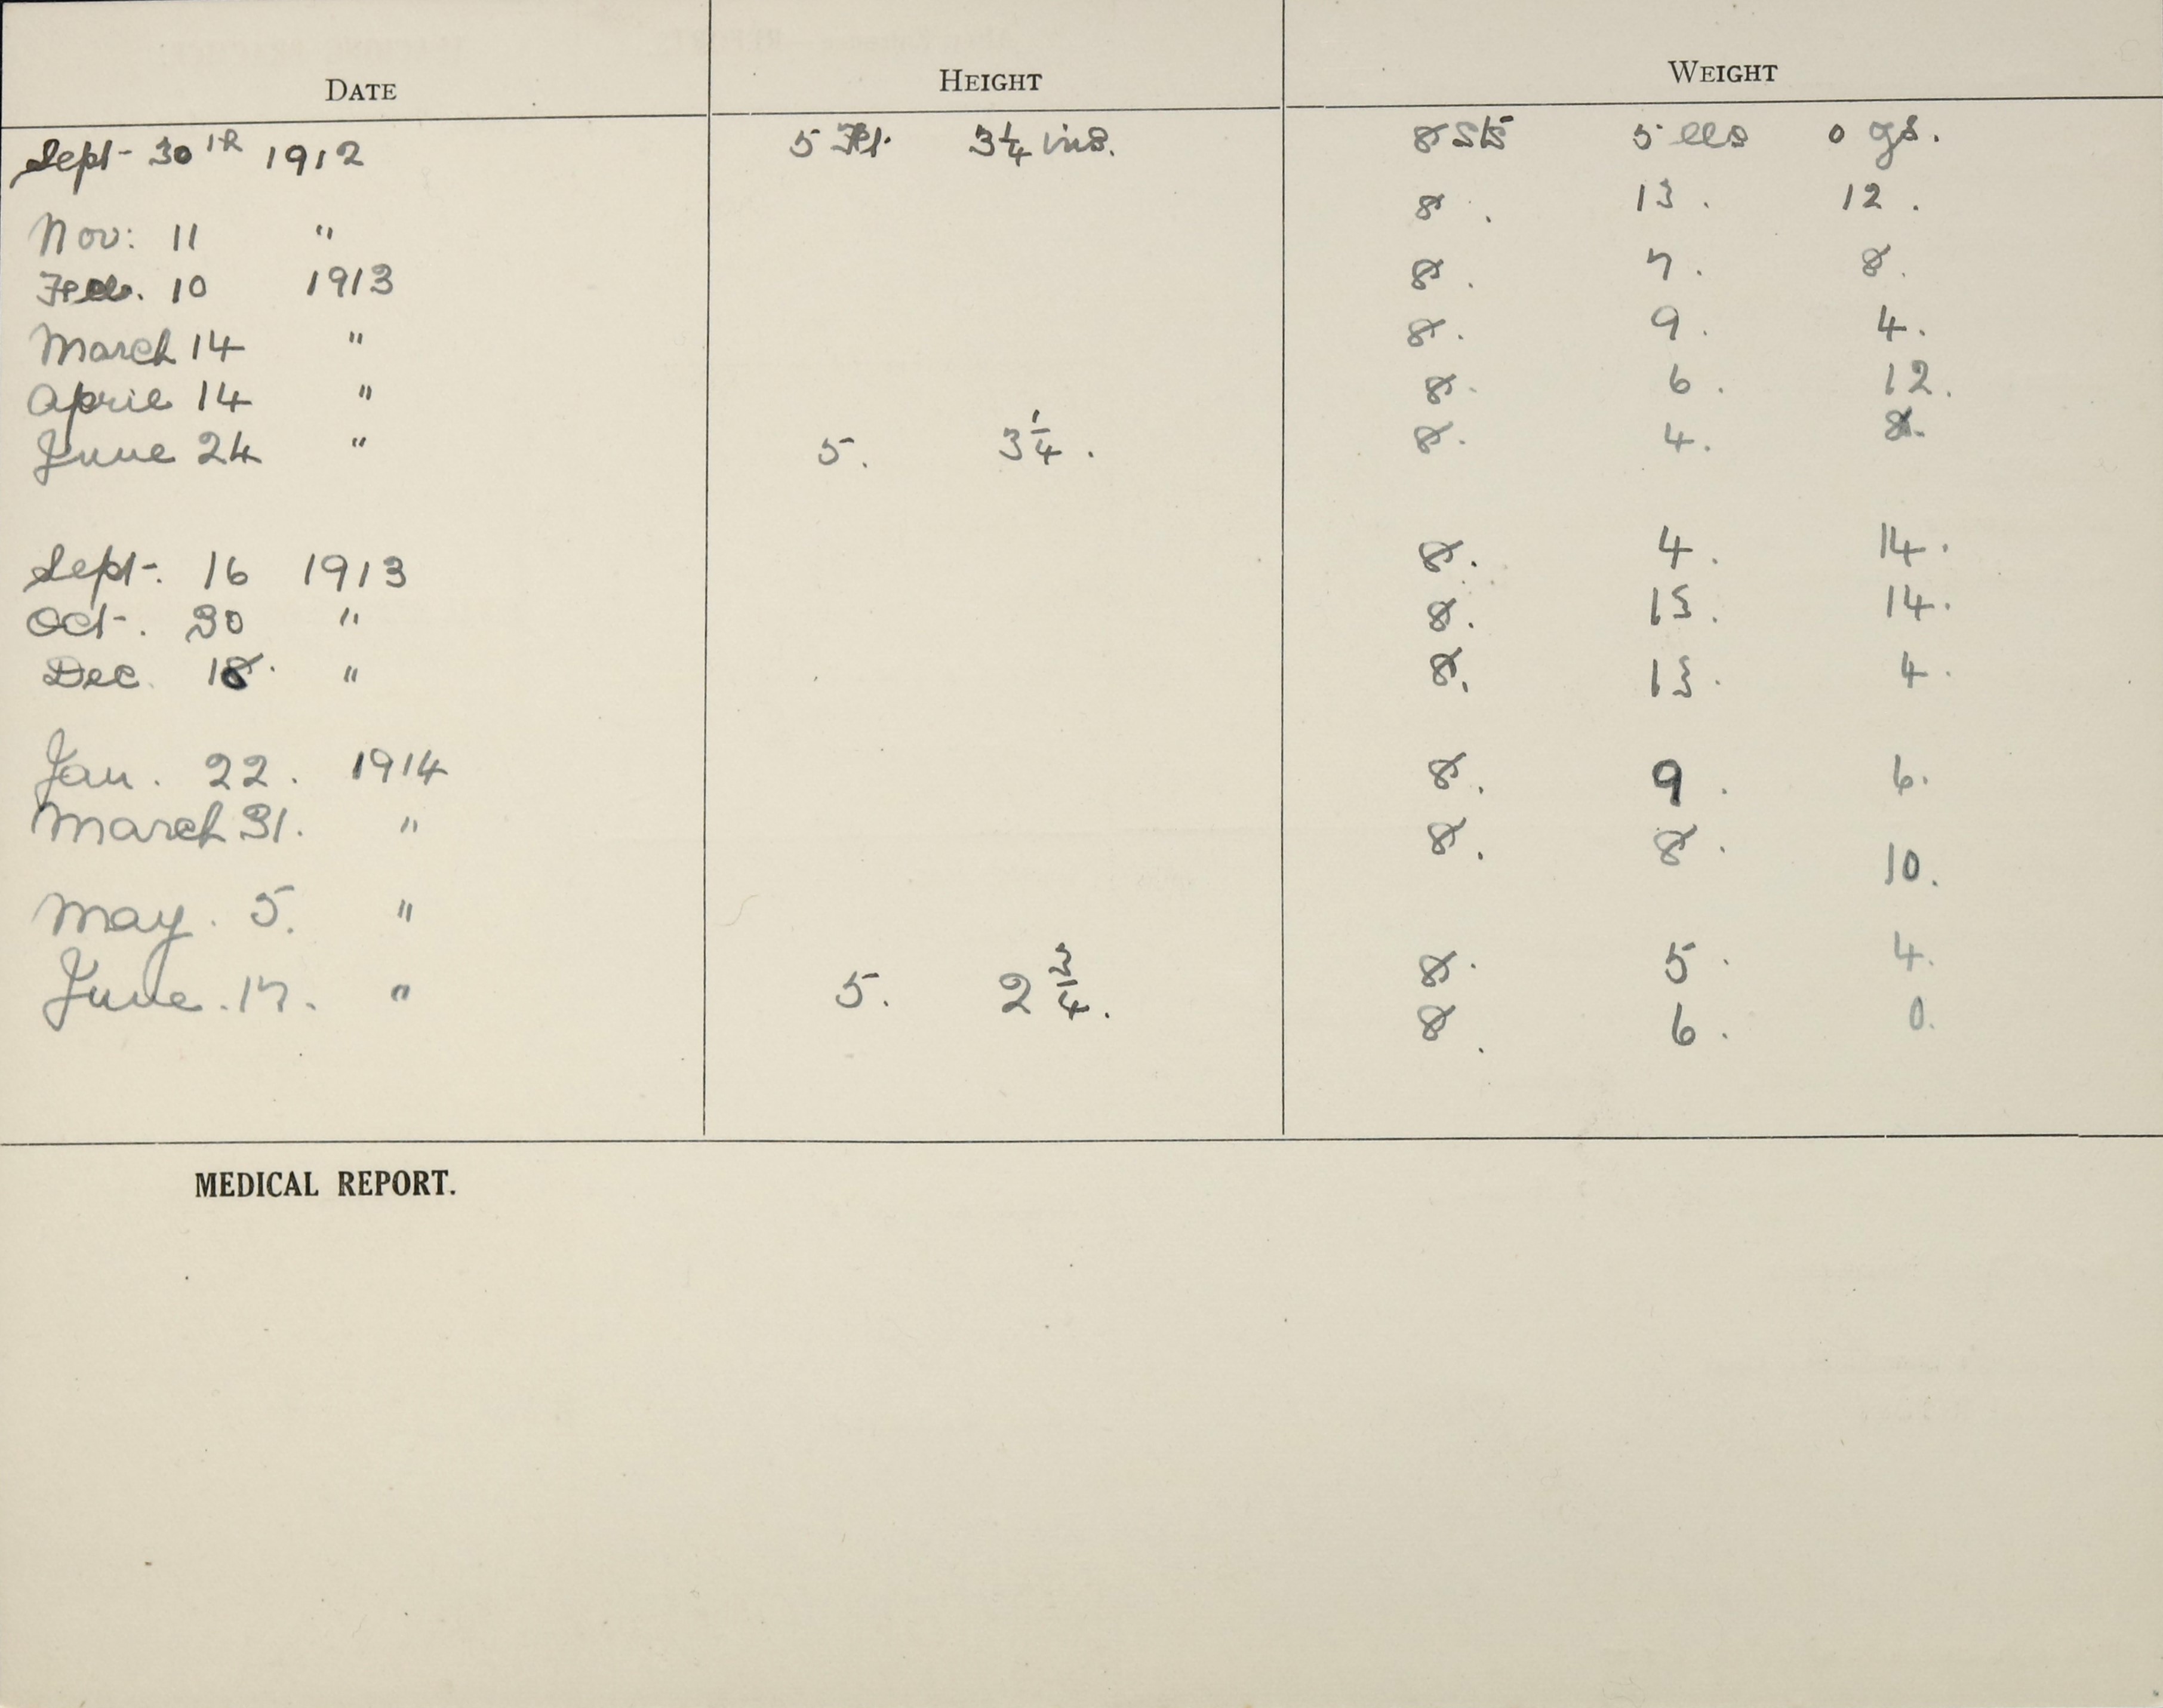 DATE HEIGHT WEIGHT
Sept 30th 1912 5 Ft. 3¼ ins. 8 sts 5 lbs 0 gs.
Nov: 11 " 8 . 13 . 12 .
Feb. 10 1913 8 . 7 . 8 .
March 14 " 8 . 9 . 4 .
April 14 " 8 . 6 . 12 .
June 24 " 5 . 3¼ . 8 . 4 . 8 .
Sept. 16 1913 8 . 4 . 14 .
Oct. 30 " 8 . 13 . 14 .
Dec. 18 . " 8 . 13 . 4 .
Jan . 22 . 1914 8 . 9 . 6 .
March 31 . " 8 . 8 . 10 .
May . 5 . " 8 . 5 . 4 .
June . 17 . " 5 . 2¾ . 8 . 6 . 0 .
MEDICAL REPORT.